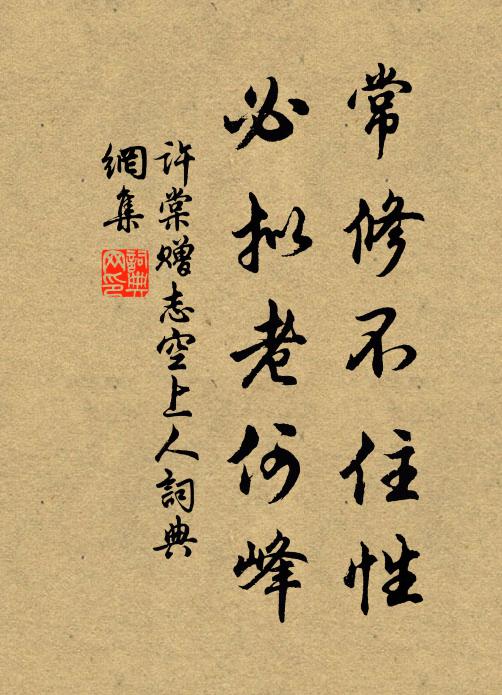 常修不住性
必拟老何峰
许棠赠志空上人詞典
網集
詞典网印